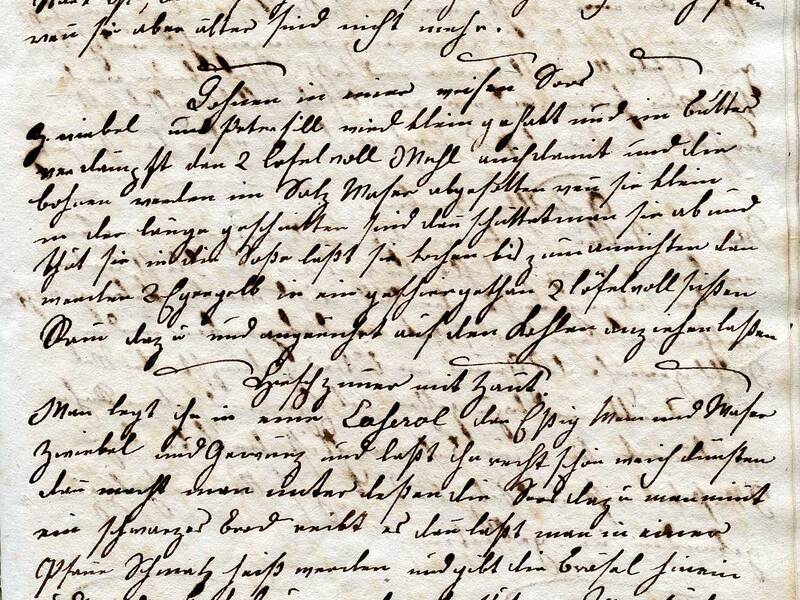 wen sie aber älter sind nicht mehr.
Bohnen in einer weisen Sos
Zwiebel und Petersill wird klein gehakt und im butter
verdämpft den 2 Lofel voll Mehl auch damit und die
bohnen werden im Salz Waser abgesotten wen sie klein
in der länge geschnitten sind dan schüttet man sie ab und
thut sie in die Soße laßt sie kochen bis zum anrichten dan
werden 3 Eyergelb in ein geschier gethan 2 löfel voll süßen
Ram dazu und angerührt auf den Kohlen anziehen laßen
Hirschzimer mit Haut.
Man legt ihn in eine Caserol den Eßig Wein und Waser
Zwiebel und Gewürz und laßt ihn recht schön weich dünsten
dan macht man unter deßen die Sos dazu man nimt
ein schwarzes brod reibt es dan laßt man in einer
Pfane Schmalz heiß werden und gibt die brösel hinein